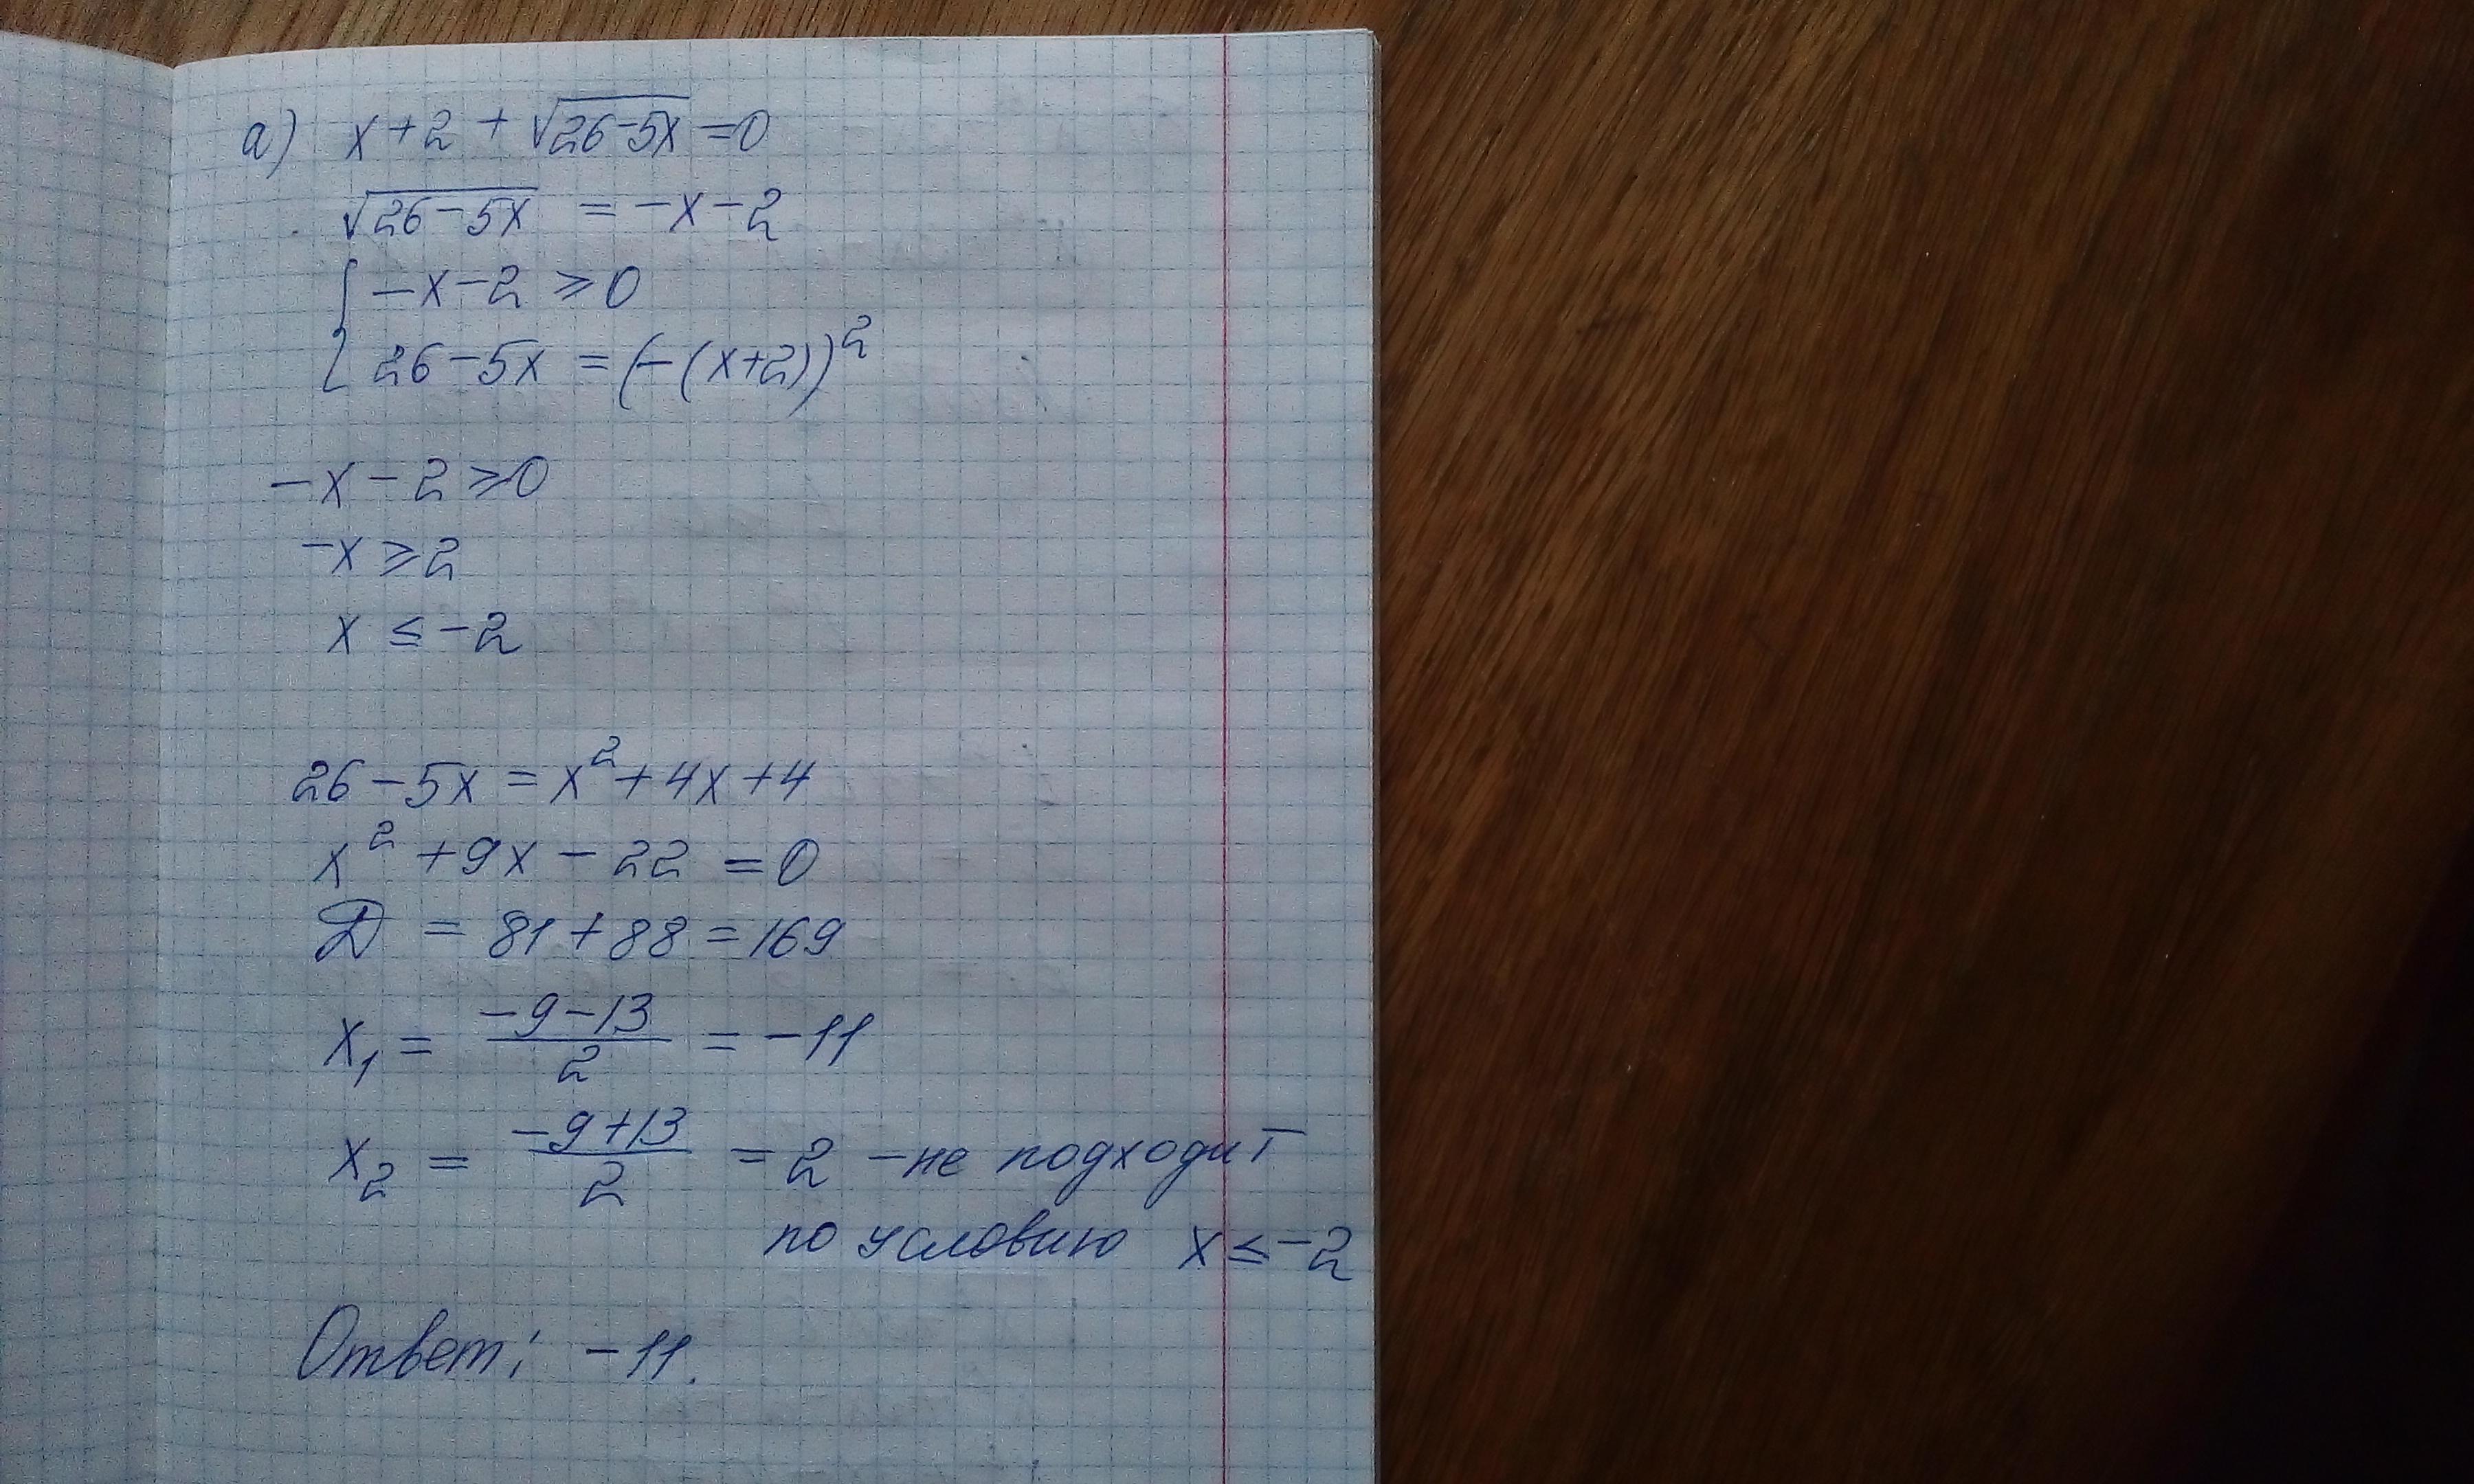 а) x+2+√(26-5x)=0
√(26-5x) = -x-2
{ -x-2 ≥ 0
{ 26-5x = (-(x+2))²
-x-2 ≥ 0
-x ≥ 2
x ≤ -2
26-5x = x²+4x+4
x²+9x-22 = 0
D = 81+88 = 169
x₁ = (-9-13)/2 = -11
x₂ = (-9+13)/2 = 2 - не подходит
по условию x ≤ -2
Ответ: -11.